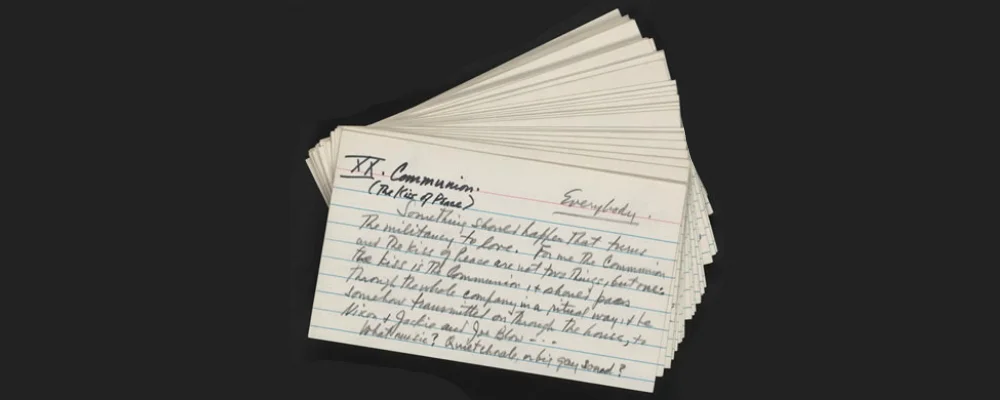 XX. Communion.
(The Kiss of Peace)
Everybody.
Something should happen that turns
the militancy to love. For me the Communion
and the Kiss of Peace are not two things, but one.
The kiss is the Communion, & should pass
through the whole company in a ritual way, & be
somehow transmitted on through the house, to
Nixon & Jackie and Joe Blow - - -
What music? Quiet chorale, or big gay sound?